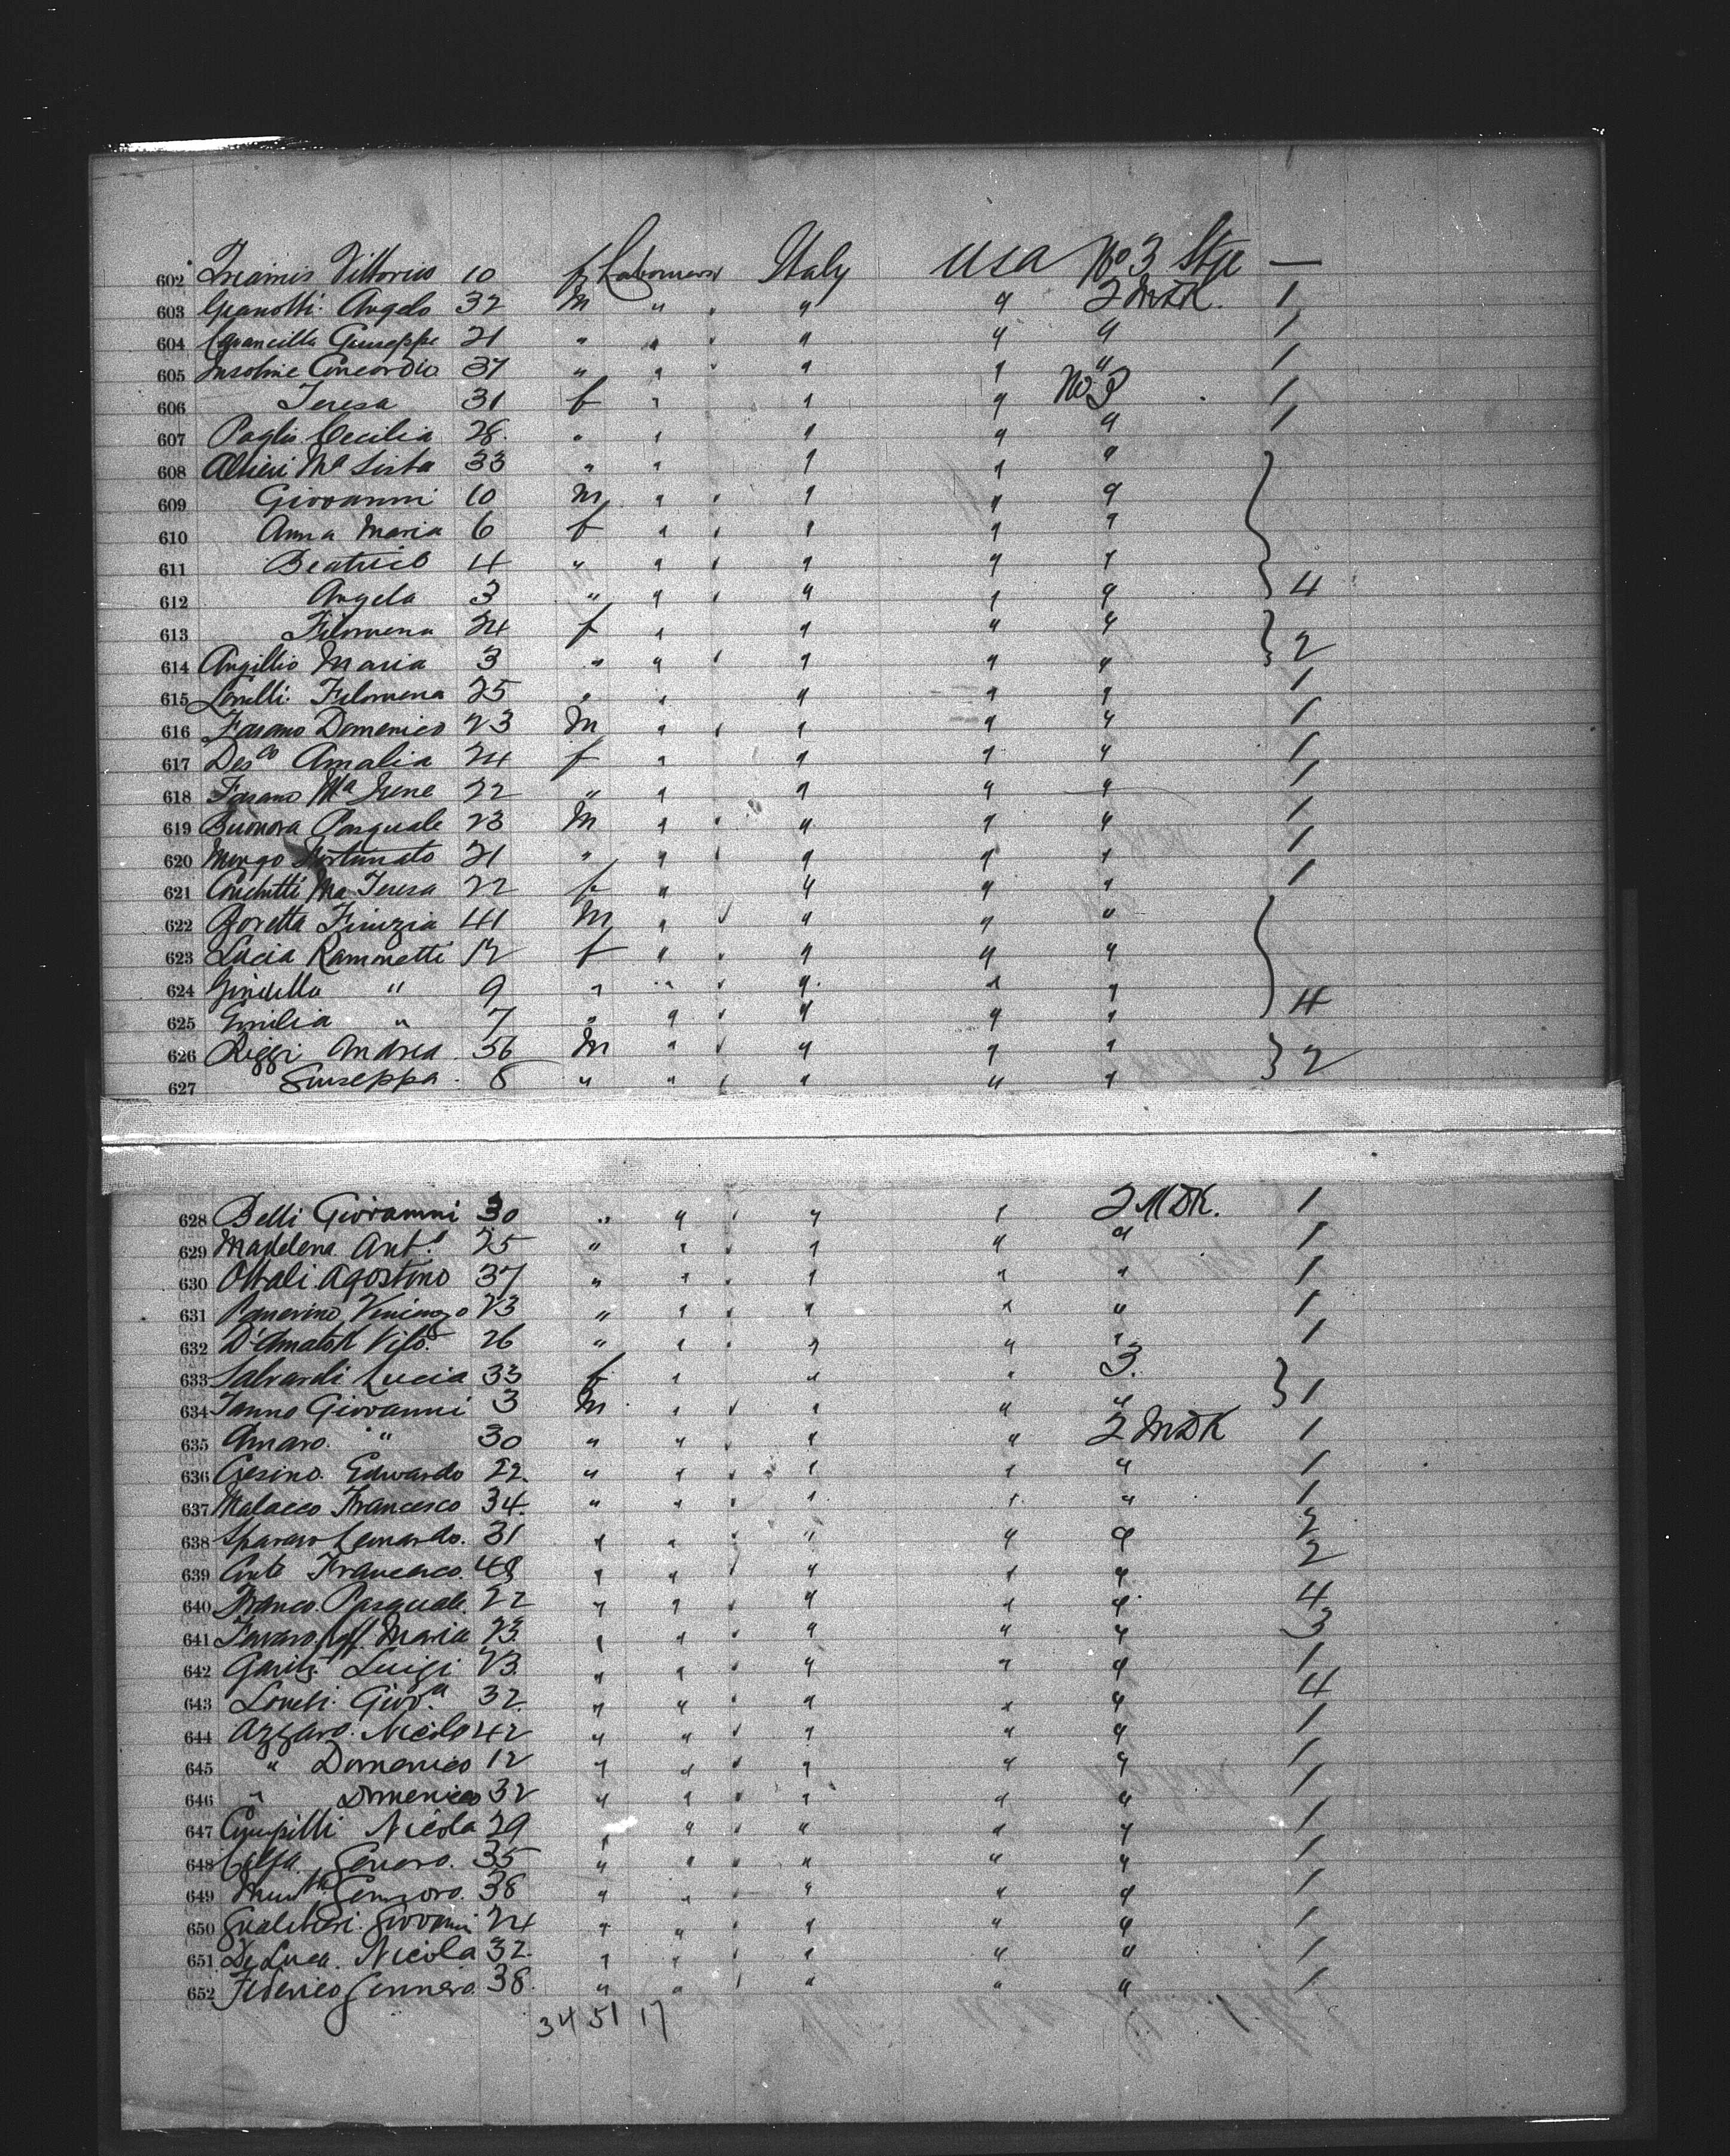 602 Vittorio 10 f Labourers Italy USA No 3 Stge —
603 Angelo 32 M " " " " 2 MDK. 1
604 Giuseppe 21 " " " " " " 1
605 Concordio 37 " " " " " " 1
606 Teresa 31 f " " " No 3 1
607 Paglio Cecilia 28 " " " " " 1
608 Altieri Ma Sista 33 " " " " "
609 Giovanni 10 M " " " " "
610 Anna Maria 6 f " " " " "
611 Beatrice 4 " " " " " "
612 Angela 3 " " " " " " 4
613 Filomena 24 f " " " "
614 Angillio Maria 3 " " " " " " 2
615 Lonelli Filomena 25 " " " " " 1
616 Fasano Domenico 23 M " " " " " 1
617 Desco Amalia 24 f " " " " 1
618 Fasano Ma Irene 22 " " " " " 1
619 Buonora Pasquale 23 M " " " " " 1
620 Fortunato 21 " " " " " " 1
621 Ma Teresa 22 f " " " " 1
622 41 M " " " " "
623 Lucia Ramonetti 12 f " " " " "
624 " 9 " " " " " "
625 Emilia " 7 " " " " " " 4
626 Rizzi Andrea 36 M " " " " " 2
627 Giuseppa 8 " " " " " "
628 Belli Giovanni 30 " " " " " 2 MDK. 1
629 Madelena Anto 25 " " " " " " 1
630 Ottali Agostino 37 " " " " " " 1
631 Vincenzo 23 " " " " " " 1
632 Vito 26 " " " " " " 1
633 Salvardi Lucia 33 f " " " 3.
634 Ianno Giovanni 3 M " " " " " 1
635 Amaro " 30 " " " " " 2 MDK 1
636 Cresino Edwardo 22 " " " " " " 1
637 Malacco Francesco 34 " " " " " " 1
638 Lenardo 31 " " " " " " 2
639 Francesco 48 " " " " " " 2
640 Franco Pasquale 22 " " " " " " 4
641 Maria 23 " " " " " " 3
642 Luigi 23 " " " " " " 1
643 Giova 32 " " " " " " 4
644 Azzaro Nicolo 42 " " " " " " 1
645 " Domenico 12 " " " " " " 1
646 " Domenico 32 " " " " " " 1
647 Nicola 29 " " " " " " 1
648 Genero 35 " " " " " " 1
649 38 " " " " " " 1
650 Gualtieri Giovanni 24 " " " " " " 1
651 De Luca Nicola 32 " " " " " " 1
652 Federico Gennaro 38 " " " " " " 1
34 51 17